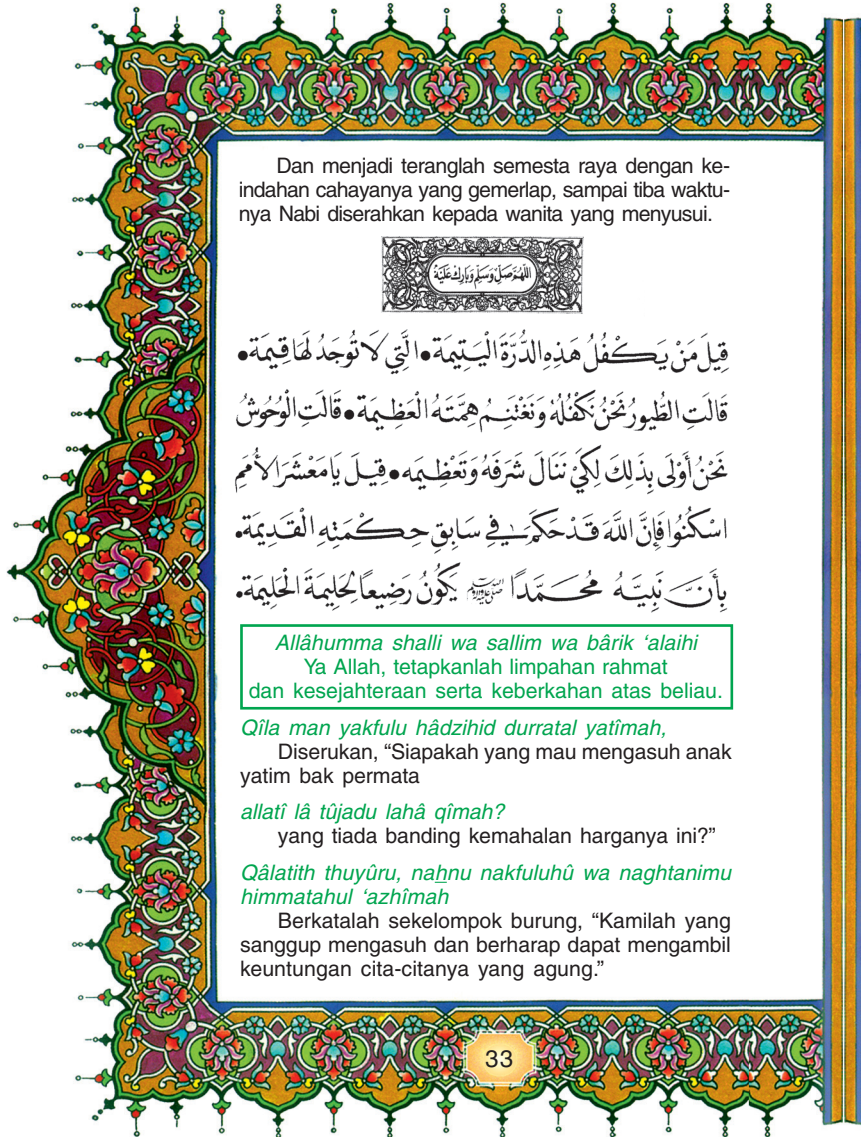 Dan menjadi teranglah semesta raya dengan ke-
indahan cahayanya yang gemerlap, sampai tiba waktu-
nya Nabi diserahkan kepada wanita yang menyusui.
اللّٰهُمَّ صَلِّ وَسَلِّمْ وَبَارِكْ عَلَيْهِ
قِيلَ مَنْ يَكْفُلُ هَذِهِ الدُّرَّةَ الْيَتِيمَةَ • الَّتِي لَا تُوجَدُ لَهَا قِيمَة •
قَالَتِ الطُّيُورُ نَحْنُ نَكْفُلُهُ وَنَغْتَنِمُ هِمَّتَهُ الْعَظِيمَة • قَالَتِ الْوُحُوشُ
نَحْنُ أَوْلَى بِذَلِكَ لِكَيْ نَنَالَ شَرَفَهُ وَتَعْظِيمَه • قِيلَ يَا مَعْشَرَ الْأُمَمِ
اسْكُنُوا فَإِنَّ اللَّهَ قَدْ حَكَمَ فِي سَابِقِ حِكْمَتِهِ الْقَدِيمَة •
بِأَنَّ نَبِيَّهُ مُحَمَّدًا ﷺ يَكُونُ رَضِيعًا لِحَلِيمَةَ الْحَلِيمَة •
Allâhumma shalli wa sallim wa bârik ‘alaihi
Ya Allah, tetapkanlah limpahan rahmat
dan kesejahteraan serta keberkahan atas beliau.
Qîla man yakfulu hâdzihid durratal yatîmah,
Diserukan, “Siapakah yang mau mengasuh anak
yatim bak permata
allatî lâ tûjadu lahâ qîmah?
yang tiada banding kemahalan harganya ini?”
Qâlatith thuyûru, nahnu nakfuluhû wa naghtanimu
himmatahul ‘azhîmah
Berkatalah sekelompok burung, “Kamilah yang
sanggup mengasuh dan berharap dapat mengambil
keuntungan cita-citanya yang agung.”
33